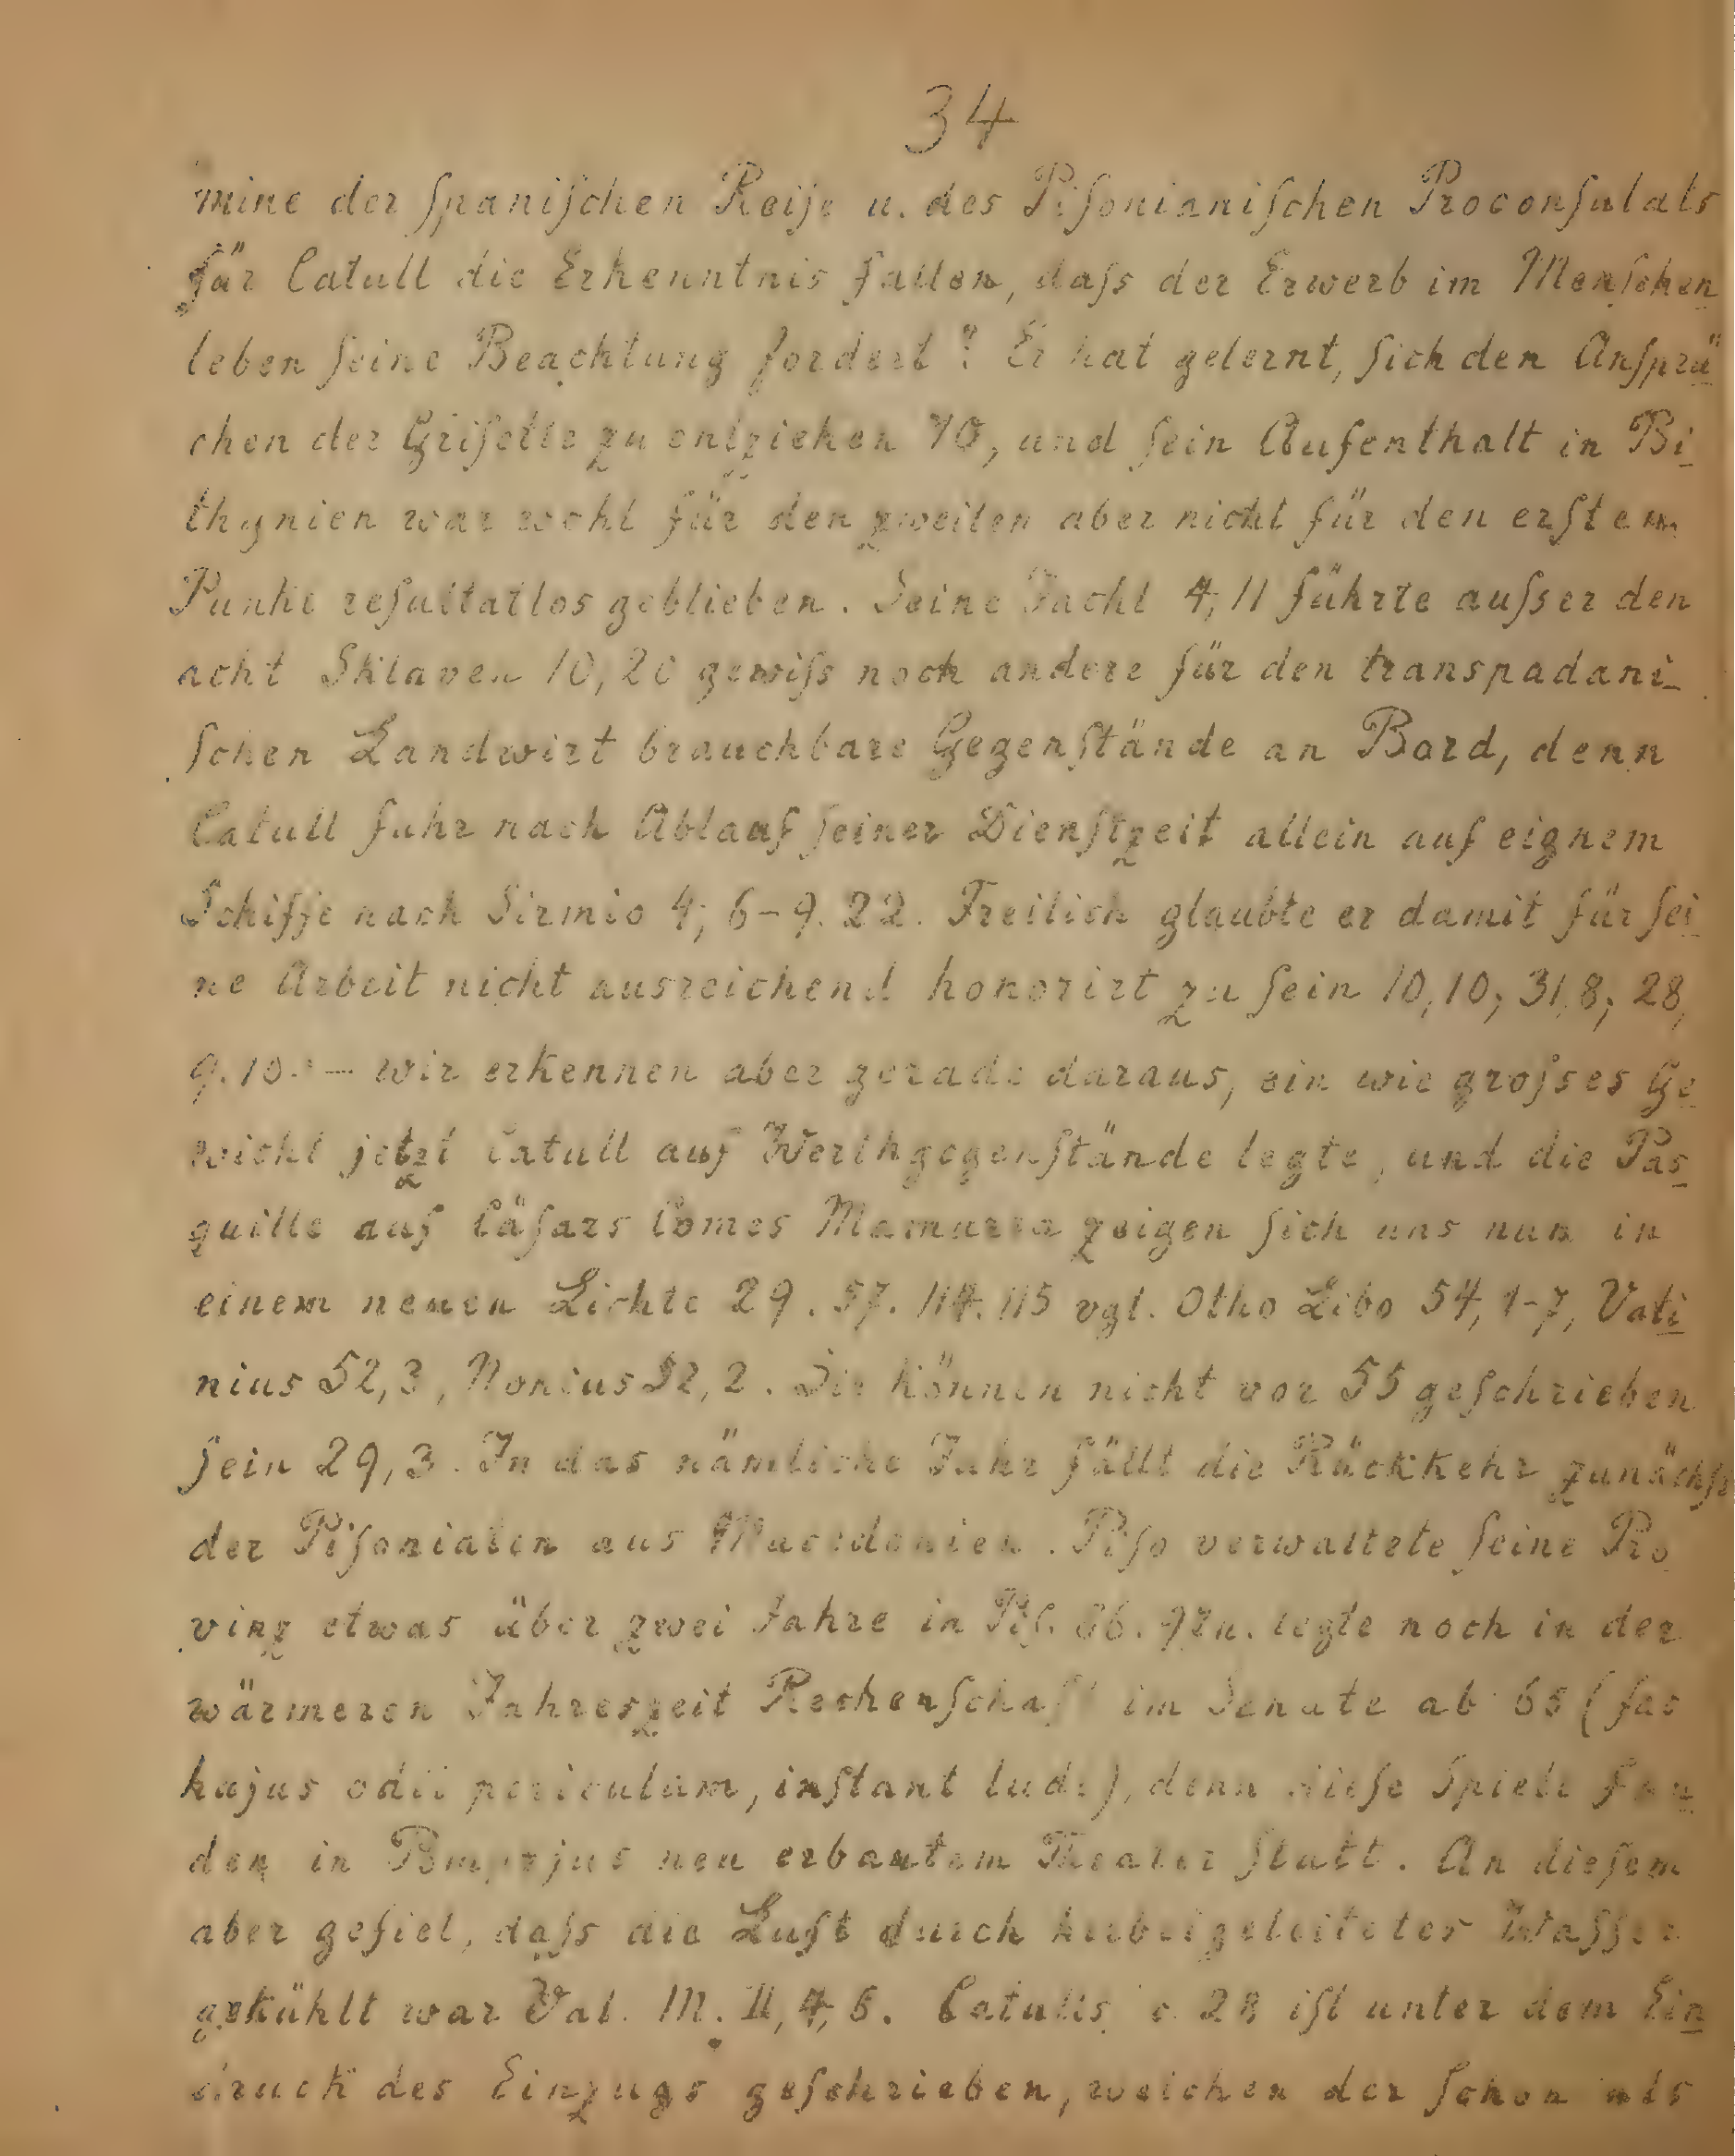 34
mine der ſpaniſchen Reiſe u. des Piſonianiſchen Proconſulats
für Catull die Erkenntnis fallen, daſs der Erwerb im Menſchen
leben ſeine Beachtung fordert? Er hat gelernt, ſich den Anſprü
chen der Griſette zu entziehen 70, und ſein Aufenthalt in Bi
thynien war wohl für den zweiten aber nicht für den erſten
Punkt reſultatlos geblieben. Seine Jacht 4, 11 führte auſser den
acht Sklaven 10, 20 gewiſs noch andere für den transpadani
ſchen Landwirt brauchbare Gegenſtände an Bord, denn
Catull fuhr nach Ablauf ſeiner Dienſtzeit allein auf eignem
Schiffe nach Sirmio 4, 6-9. 22. Freilich glaubte er damit für ſei
ne Arbeit nicht ausreichend honorirt zu ſein 10, 10; 31, 8; 28,
9. 10. — wir erkennen aber gerade daraus, ein wie groſses Ge
wicht jetzt Catull auf Werthgegenſtände legte, und die Pas
quille auf Cäſars Comes Mamurra zeigen ſich uns nun in
einem neuen Lichte 29. 57. 114. 115 vgl. Otho Libo 54, 1-7, Vati
nius 52, 3, Nonius 52, 2. Sie können nicht vor 55 geſchrieben
ſein 29, 3. In das nämliche Jahr fällt die Rückkehr zunächſt
der Piſonialen aus Macedonien. Piſo verwaltete ſeine Pro
vinz etwas über zwei Jahre in Piſ. 97 u. legte noch in der
wärmeren Jahreszeit Rechenſchaft im Senate ab 65 (fac
hujus odii periculum, inſtant ludi), denn dieſe Spiele fan
den in Pompejus neu erbautem Theater ſtatt. An dieſem
aber gefiel, daſs die Luft durch herbeigeleitetes Waſſer
gekühlt war Val. M. II, 4, 6. Catulls c. 28 iſt unter dem Ein
druck des Einzugs geſchrieben, welchen der ſchon als